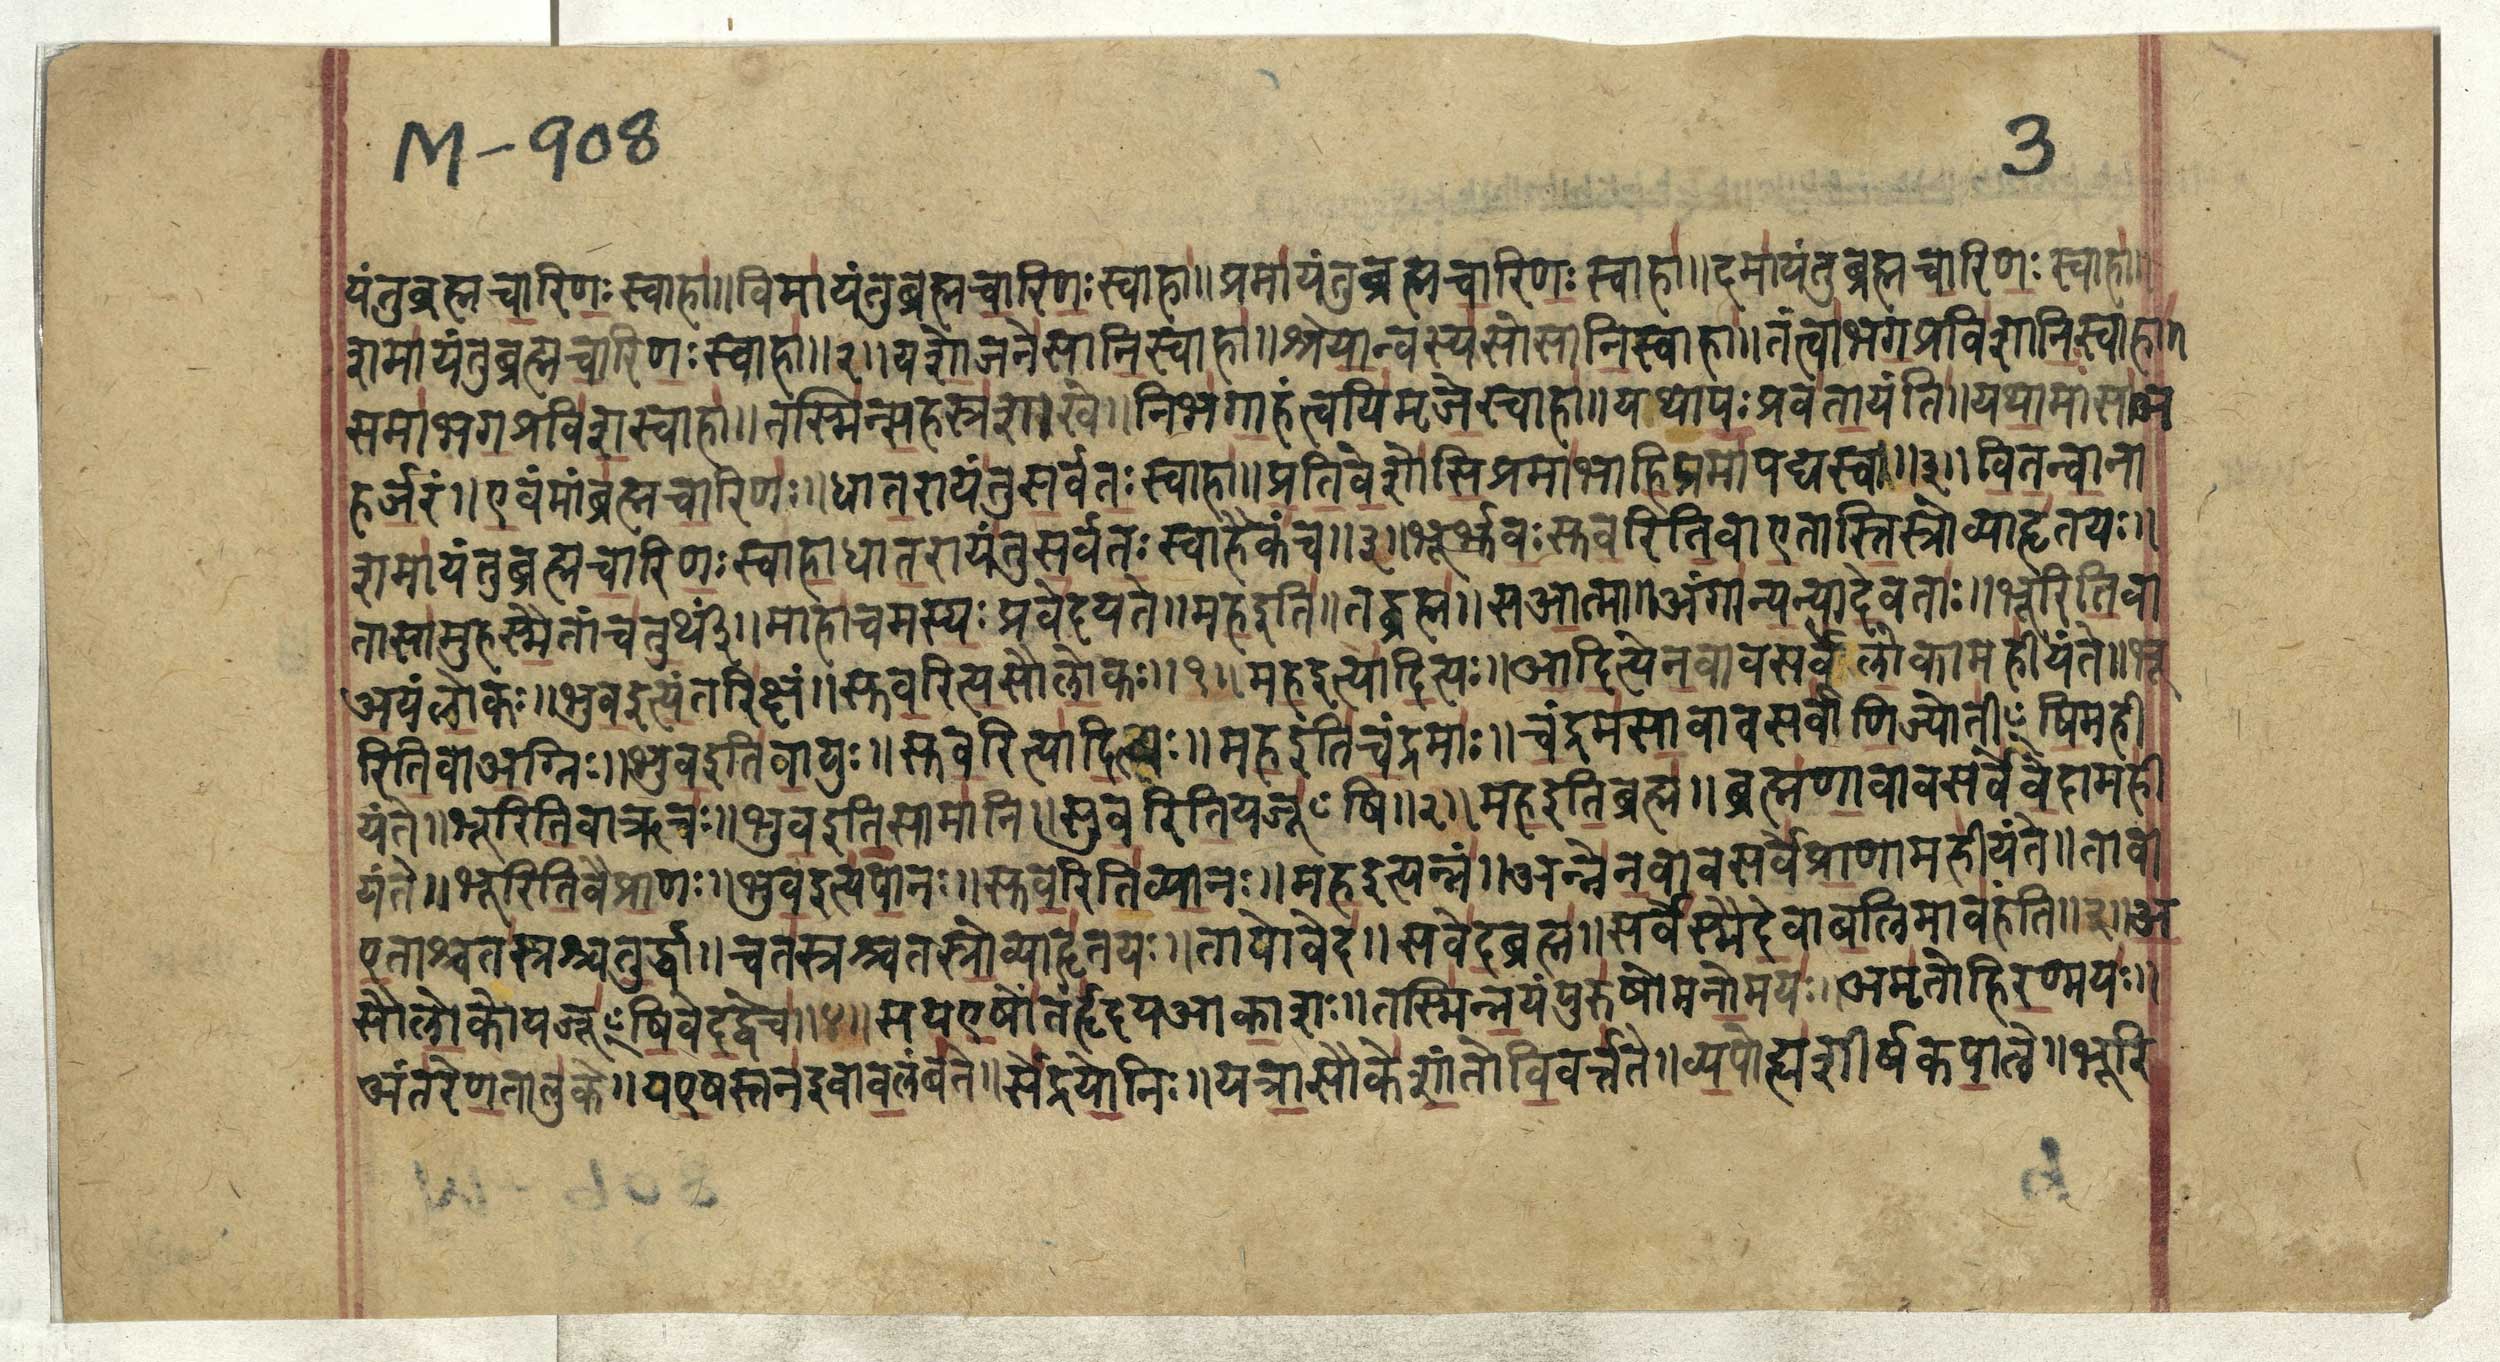 M-908 3
यंतुब्रह्मचारिणः स्वाहा॥ विमायंतुब्रह्मचारिणः स्वाहा॥ प्रमायंतुब्रह्मचारिणः स्वाहा॥ दमायंतुब्रह्मचारिणः स्वाहा॥
शमायंतुब्रह्मचारिणः स्वाहा॥२॥ यशोजनेसानिस्वाहा॥ श्रेयान्वस्यसोसानिस्वाहा॥ तंत्वाभगप्रविशानिस्वाहा॥
समाभगप्रविशस्वाहा॥ तस्मिन्सहस्रशाखे॥ निभगाहंत्वयिमृजेस्वाहा॥ यथापः प्रवतायंति॥ यथामासाअ
हर्जरं॥ एवंमांब्रह्मचारिणः॥ धातरायंतुसर्वतः स्वाहा॥ प्रतिवेशोसिप्रमाभाहिप्रमापद्यस्व॥३॥ वितन्वाना
शमायंतुब्रह्मचारिणः स्वाहाधातरायंतुसर्वतः स्वाहैकंच॥३॥ भूर्भुवः सुवरितिवाएतास्तिस्रोव्याहृतयः॥
तासामुहस्मैतांचतुर्थीं॥ माहाचमस्यः प्रवेदयते॥ महइति॥ तद्ब्रह्म॥ सआत्मा॥ अंगान्यन्यादेवताः॥ भूरितिवा
अयंलोकः॥ भुवइत्यंतरिक्षं॥ सुवरित्यसौलोकः॥१॥ महइत्यादित्यः॥ आदित्येनवावसर्वेलोकामहीयंते॥ भू
रितिवाअग्निः॥ भुवइतिवायुः॥ सुवरित्यादित्यः॥ महइतिचंद्रमाः॥ चंद्रमसावावसर्वाणिज्योतीꣳषिमही
यंते॥ भूरितिवाऋचः॥ भुवइतिसामानि॥ सुवरितियजूꣳषि॥२॥ महइतिब्रह्म॥ ब्रह्मणावावसर्वेवेदामही
यंते॥ भूरितिवैप्राणः॥ भुवइत्यपानः॥ सुवरितिव्यानः॥ महइत्यन्नं॥ अन्नेनवावसर्वेप्राणामहीयंते॥ तावा
एताश्चतस्रश्चतुर्द्धा॥ चतस्रश्चतस्रोव्याहृतयः॥ तायोवेद॥ सवेदब्रह्म॥ सर्वेस्मैदेवाबलिमावहंति॥३॥ अ
सौलोकोयजूꣳषिवेदद्वेच॥४॥ सयएषोंतर्हृदयआकाशः॥ तस्मिन्नयंपुरुषोमनोमयः॥ अमृतोहिरण्मयः॥
अंतरेणतालुके॥ यएषस्तनइवावलंबते॥ सेंद्रयोनिः॥ यत्रासौकेशांतोविवर्त्तते॥ व्यपोह्यशीर्षकपाले॥ भूरि